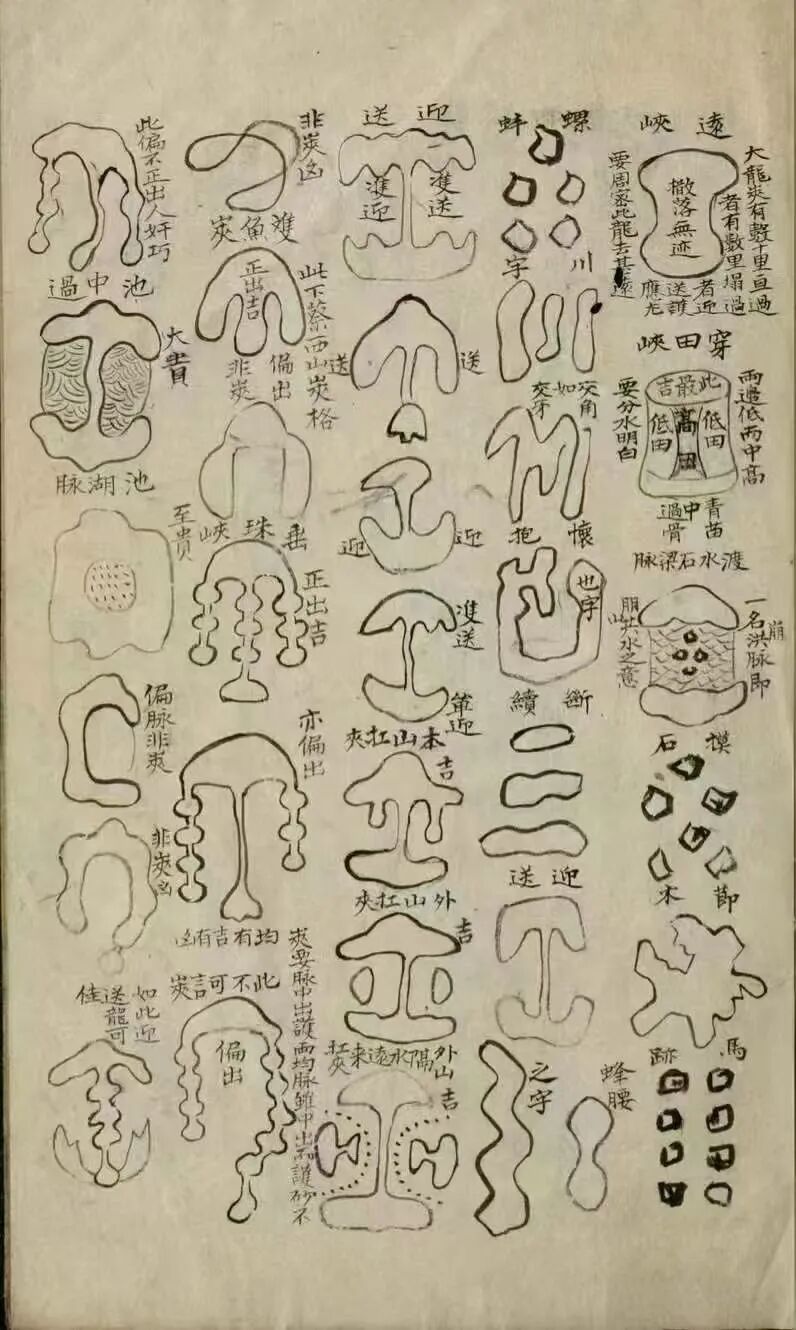 遠峽
大龍峽有數十里直過
者有數里塌過
者迎
送護
應尤
撒落無迹
要周密此龍去甚遠
穿田峽
兩邊低而中高
此最吉
低田
高田
低田
要分水明白
青苗
中骨
過
渡水石梁脉
一名洪脉即
崩
崩共水之意
模石
節木
馬跡
螺蚌
川字
交角
如
交牙
懷抱
也字
斷續
迎送
之字
蜂腰
迎送
雙送
雙迎
送
送
迎
迎
雙送
單迎
本山扛夾
吉
外山扛夾
吉
外山隔水遠來扛夾
吉
非峽凶
雙魚峽
正出吉
此下蔡西山峽格
偏出
非峽
垂珠峽
正出吉
亦偏出
均有吉有凶
夾要脉中出護而均脉雖中出而護砂不
此不可言峽
偏出
此偏不正出人奸巧
池中過
大貴
池湖脉
至貴
偏脉非峽
非峽凶
如此迎
送龍可
佳